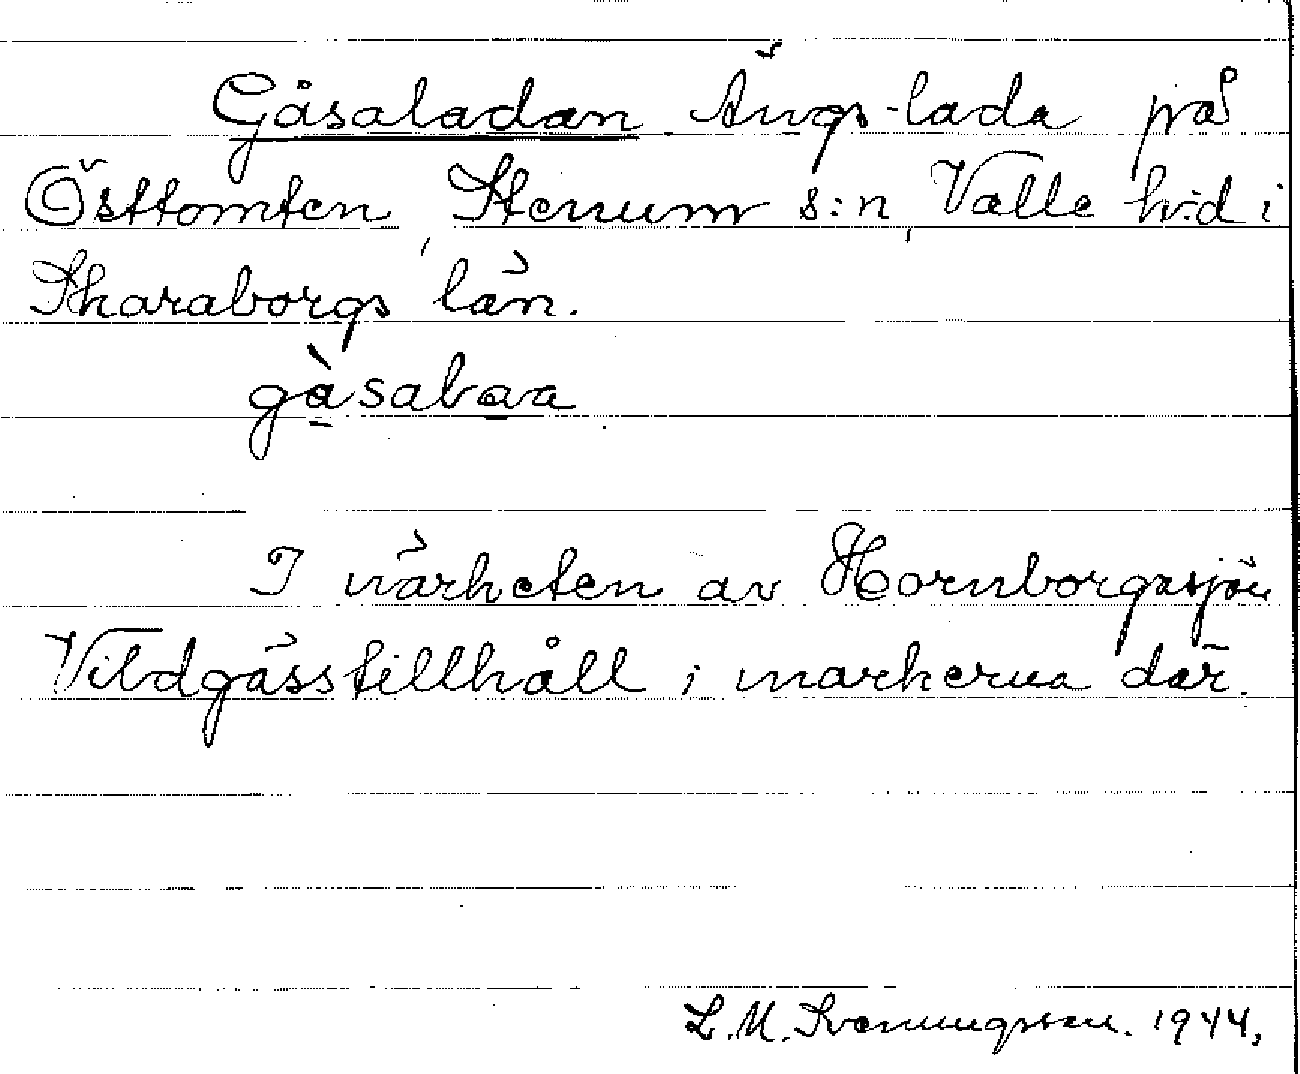 Gåsaladan Ängs-lada på
Östtomten, Stenum s:n, Valle h:d i
Skaraborgs län.
gàsalaa
I närheten av Hornborgasjön
Vildgässtillhåll i markerna där.
L. M. Svenungsson. 1944.